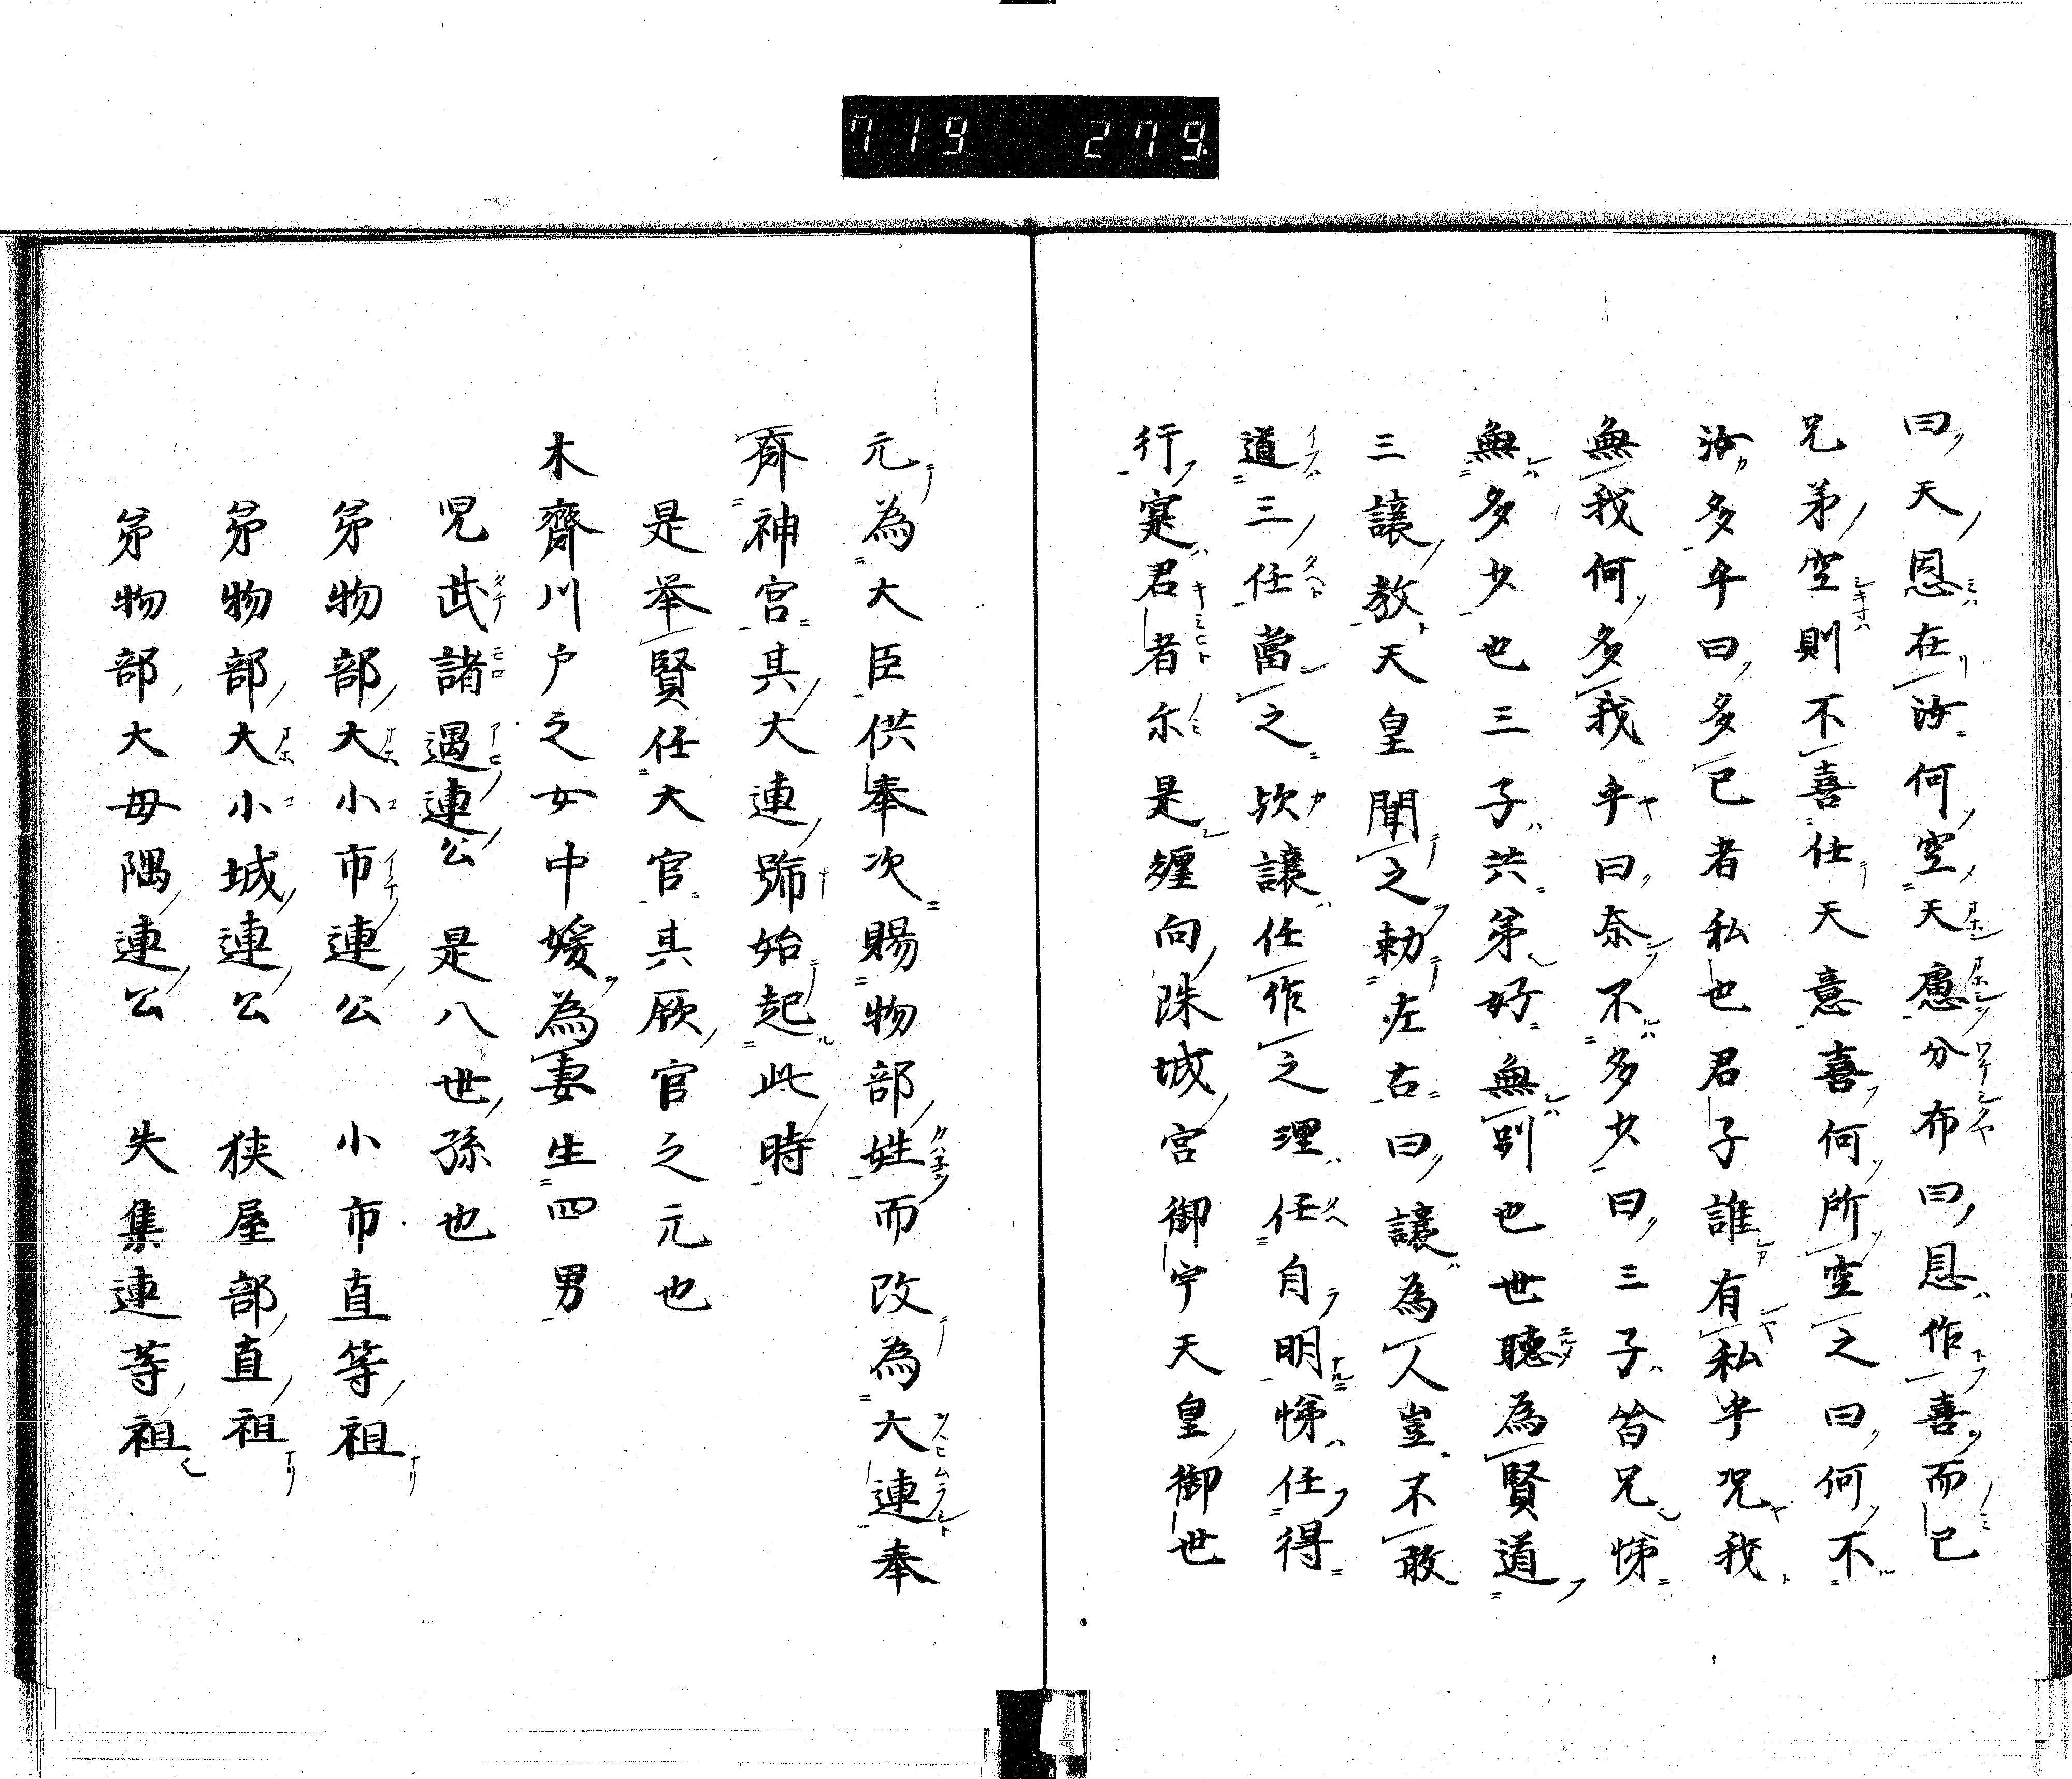 719 279.
曰天恩在汝何空天慮分布曰恩作喜而已
兄弟空則不喜任天意喜何所空之曰何不
汝多乎曰多已者私也君子誰有私乎况我
無我何多我乎曰奈不多少曰三子笞兄悌
無多少也三子共第好無別也世聴為賢道
三讓教天皇聞之勅左右曰讓為人豈不敢
道三任當之欤讓任作之理任自明悌任得
行寔君者尓是纒向珠城宮御宇天皇御世
元為大臣供奉次賜物部姓而改為大連奉
齊神宮其大連號始起此時
是举賢任大官其厥官之元也
木齊川戸之女中媛為妻生四男
児武諸遇連公 是八世孫也
弟物部大小市連公 小市直等祖
弟物部大小城連公 狭屋部直祖
弟物部大母隅連公 失集連等祖